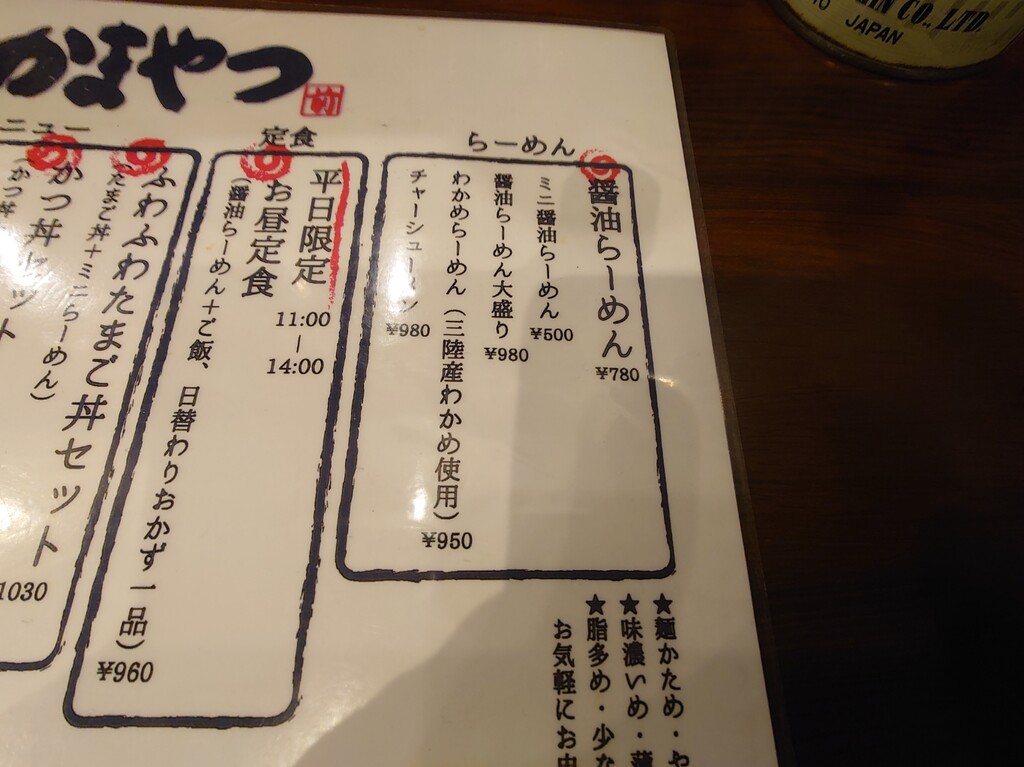 かまやつ
らーめん
醤油らーめん
¥780
ミニ醤油らーめん
¥500
醤油らーめん大盛り
¥980
わかめらーめん（三陸産わかめ使用）
¥950
チャーシューメン
¥980
定食
平日限定
11:00
|
14:00
お昼定食
（醤油らーめん＋ご飯、日替わりおかず一品）
¥960
ニュー
ふわふわたまご丼セット
（たまご丼＋ミニらーめん）
1030
かつ丼セット
（かつ丼
★麺かため・や
★味濃いめ・薄
★脂多め・少な
お気軽にお申
CO., LTD.
JAPAN